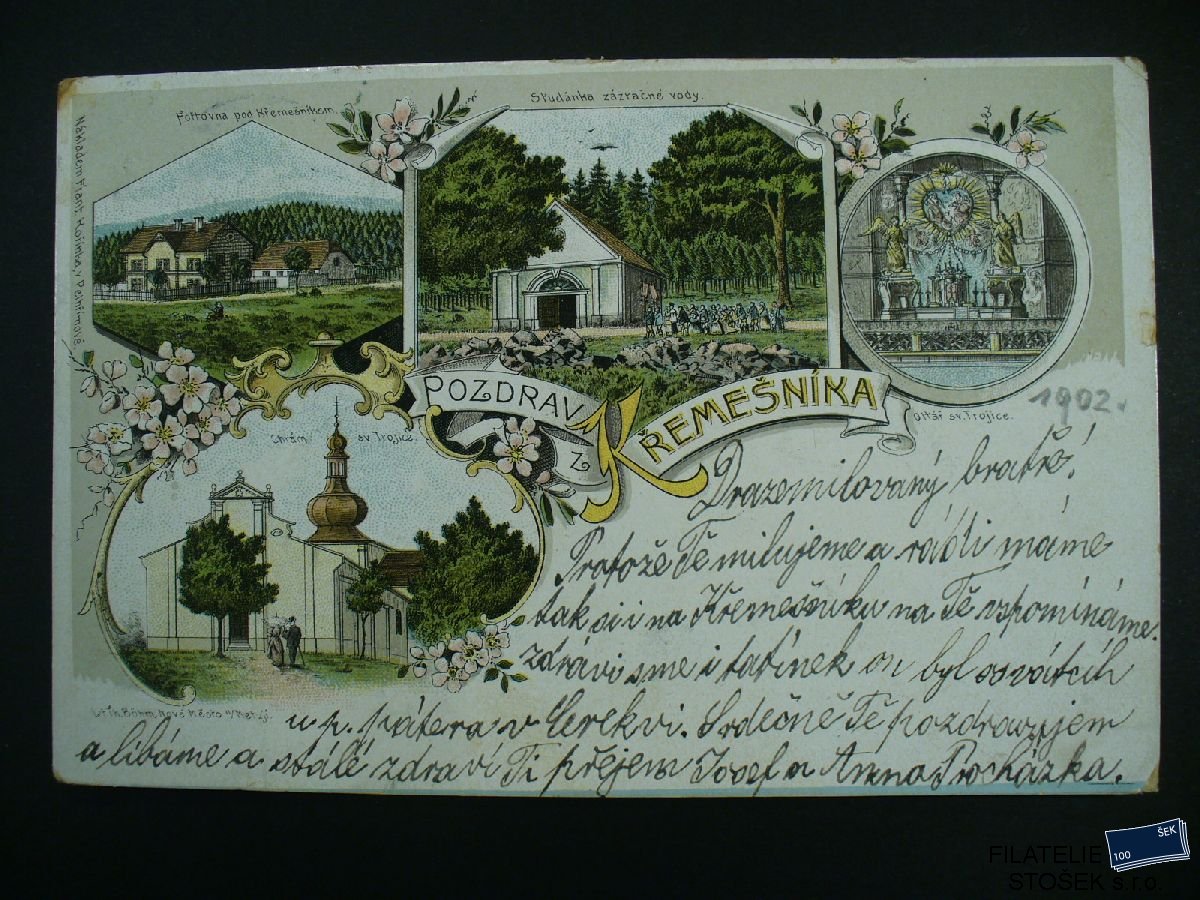 Studánka zázračné vody.
Fořtovna pod Křemešníkem.
Nákladem Frant. Kořínka, v Pelhřimově.
POZDRAV
Z
KŘEMEŠNÍKA
Oltář sv. Trojice.
1902.
Chrám sv. Trojice.
Drazemilovaný bratře!
Protože Tě milujeme a rádi máme
tak si i na Křemešníku na Tě vzpomínáme.
zdrávi sme i tatínek on byl o svátcích
Lit. Th. Böhm, Nové Město n/Met.
u p. pátera v Cerekvi. Srdečně Tě pozdravujem
a líbáme a stálé zdraví Ti přejem Josef a Anna Procházka.
100 ŠEK
FILATELIE
STOŠEK s.r.o.